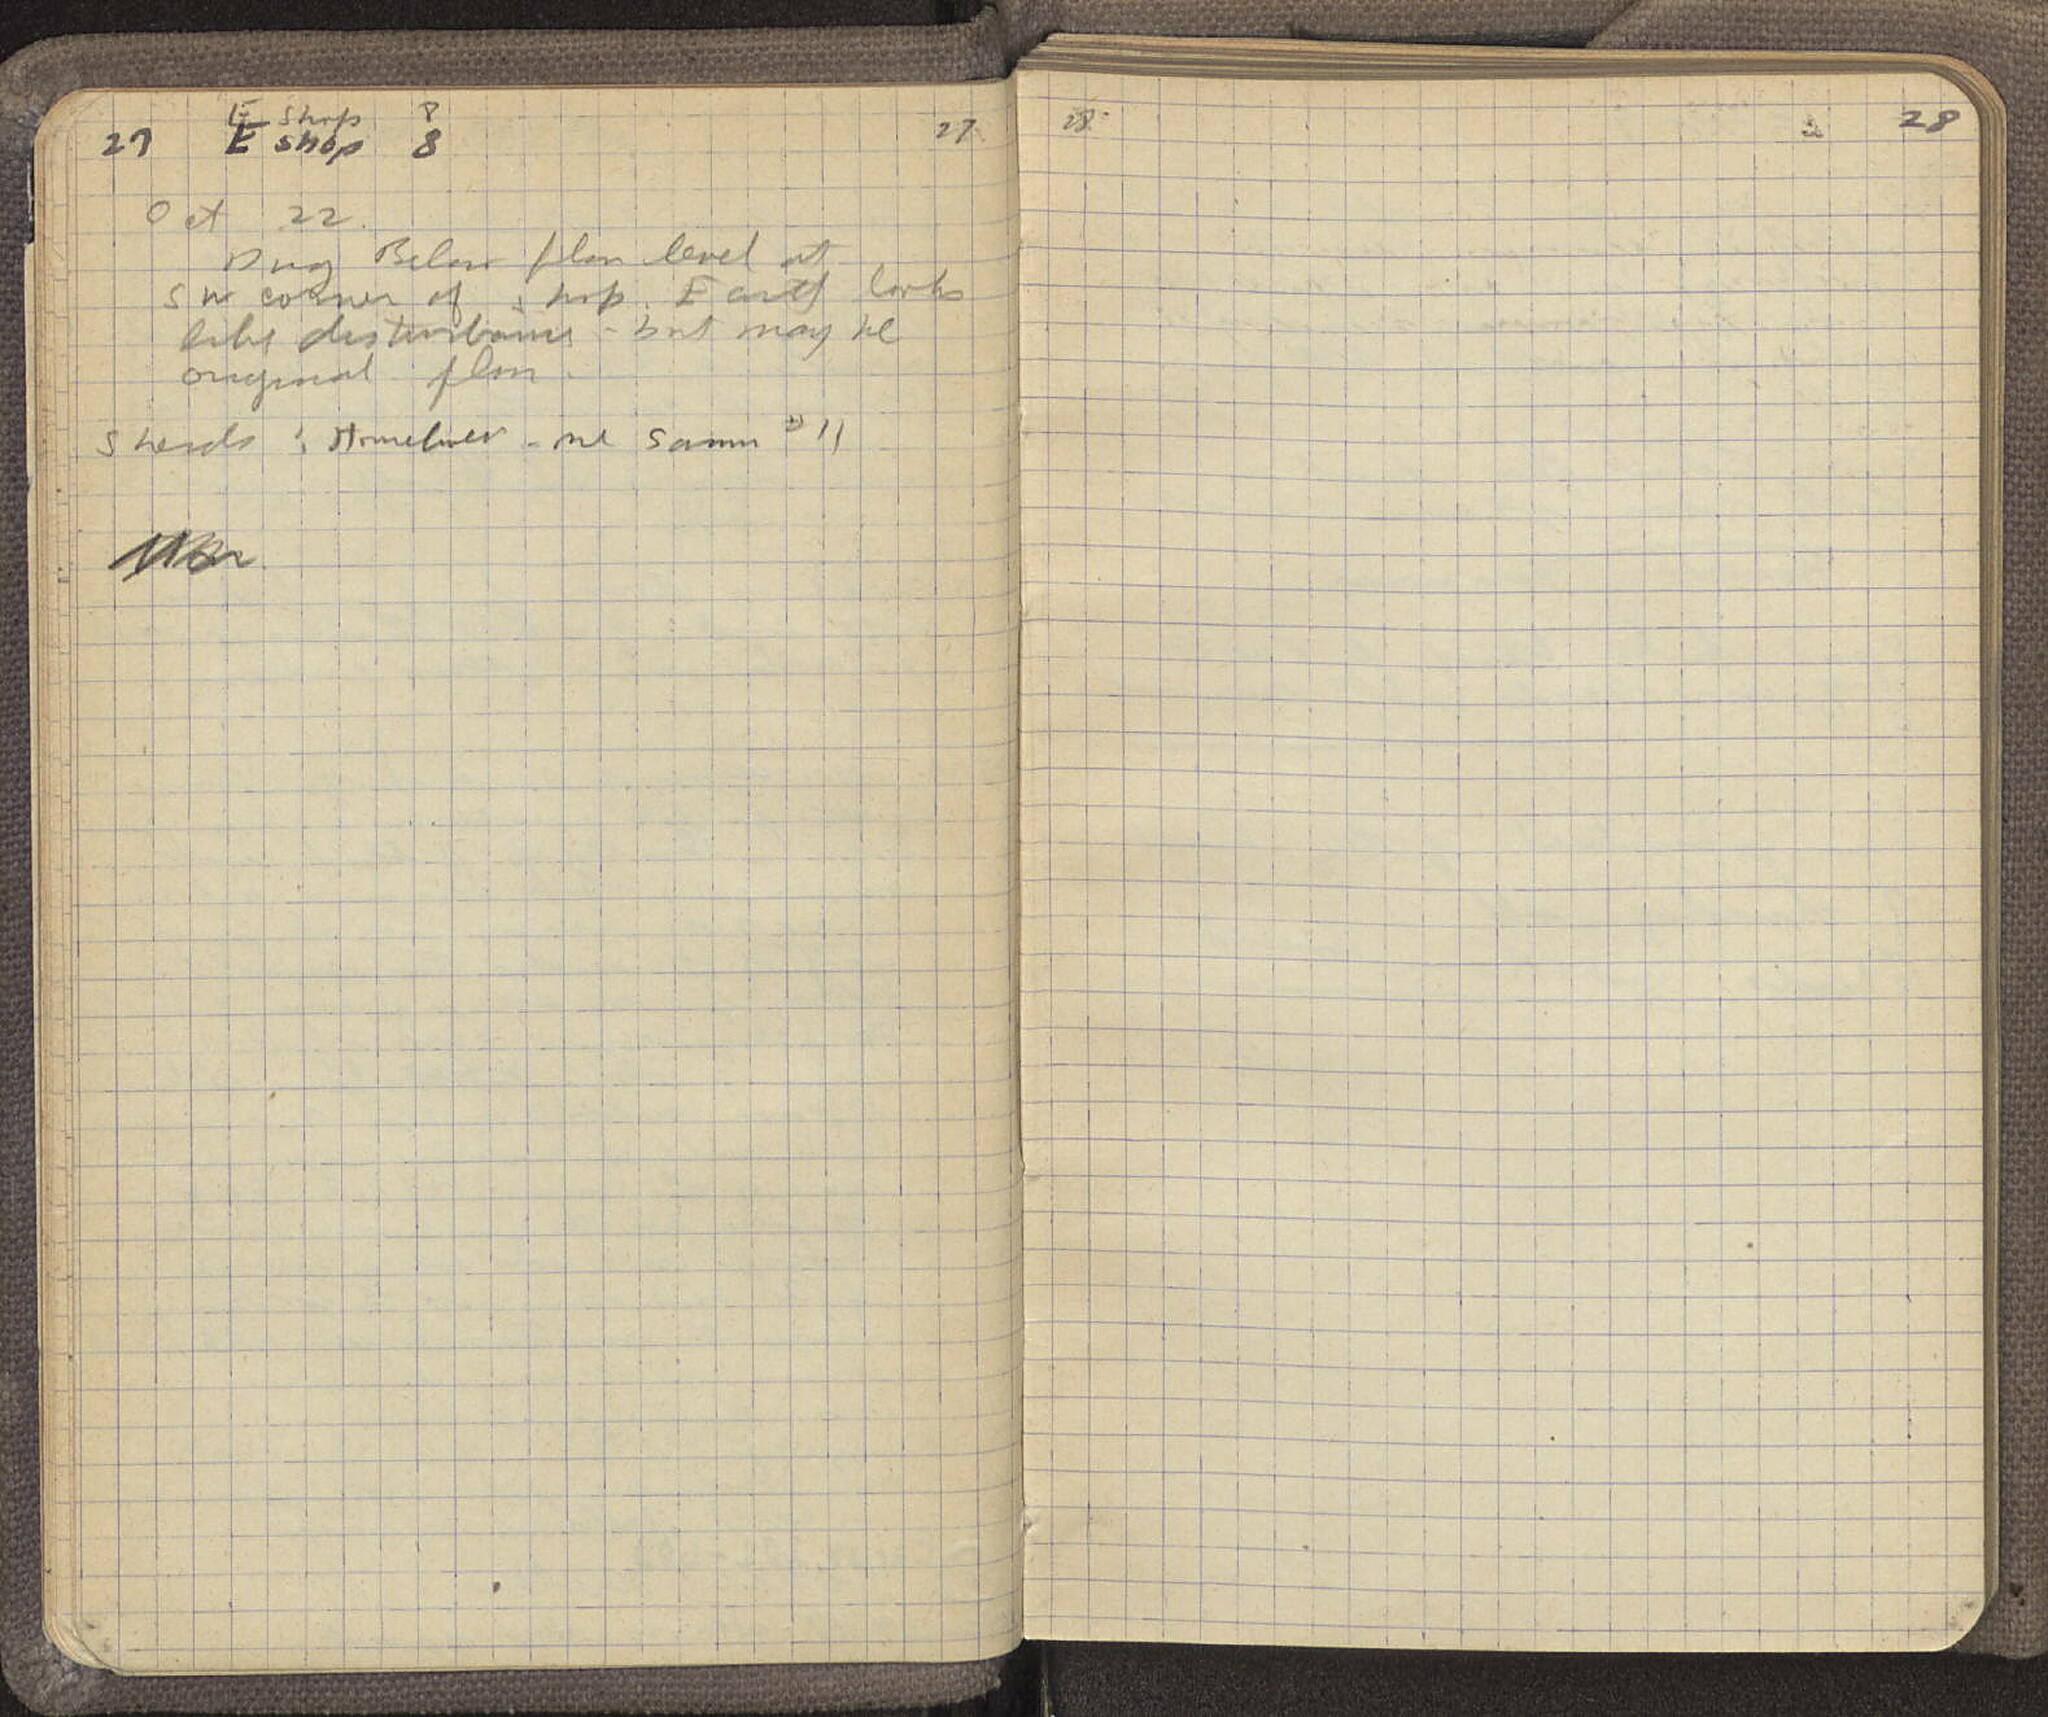 E Shop 8
27 E shop 8 27
Oct 22.
Dug Below floor level at
SW corner of shop. Earth looks
like disturbance - but may be
original floor.
Sherds : - one #11
28 28